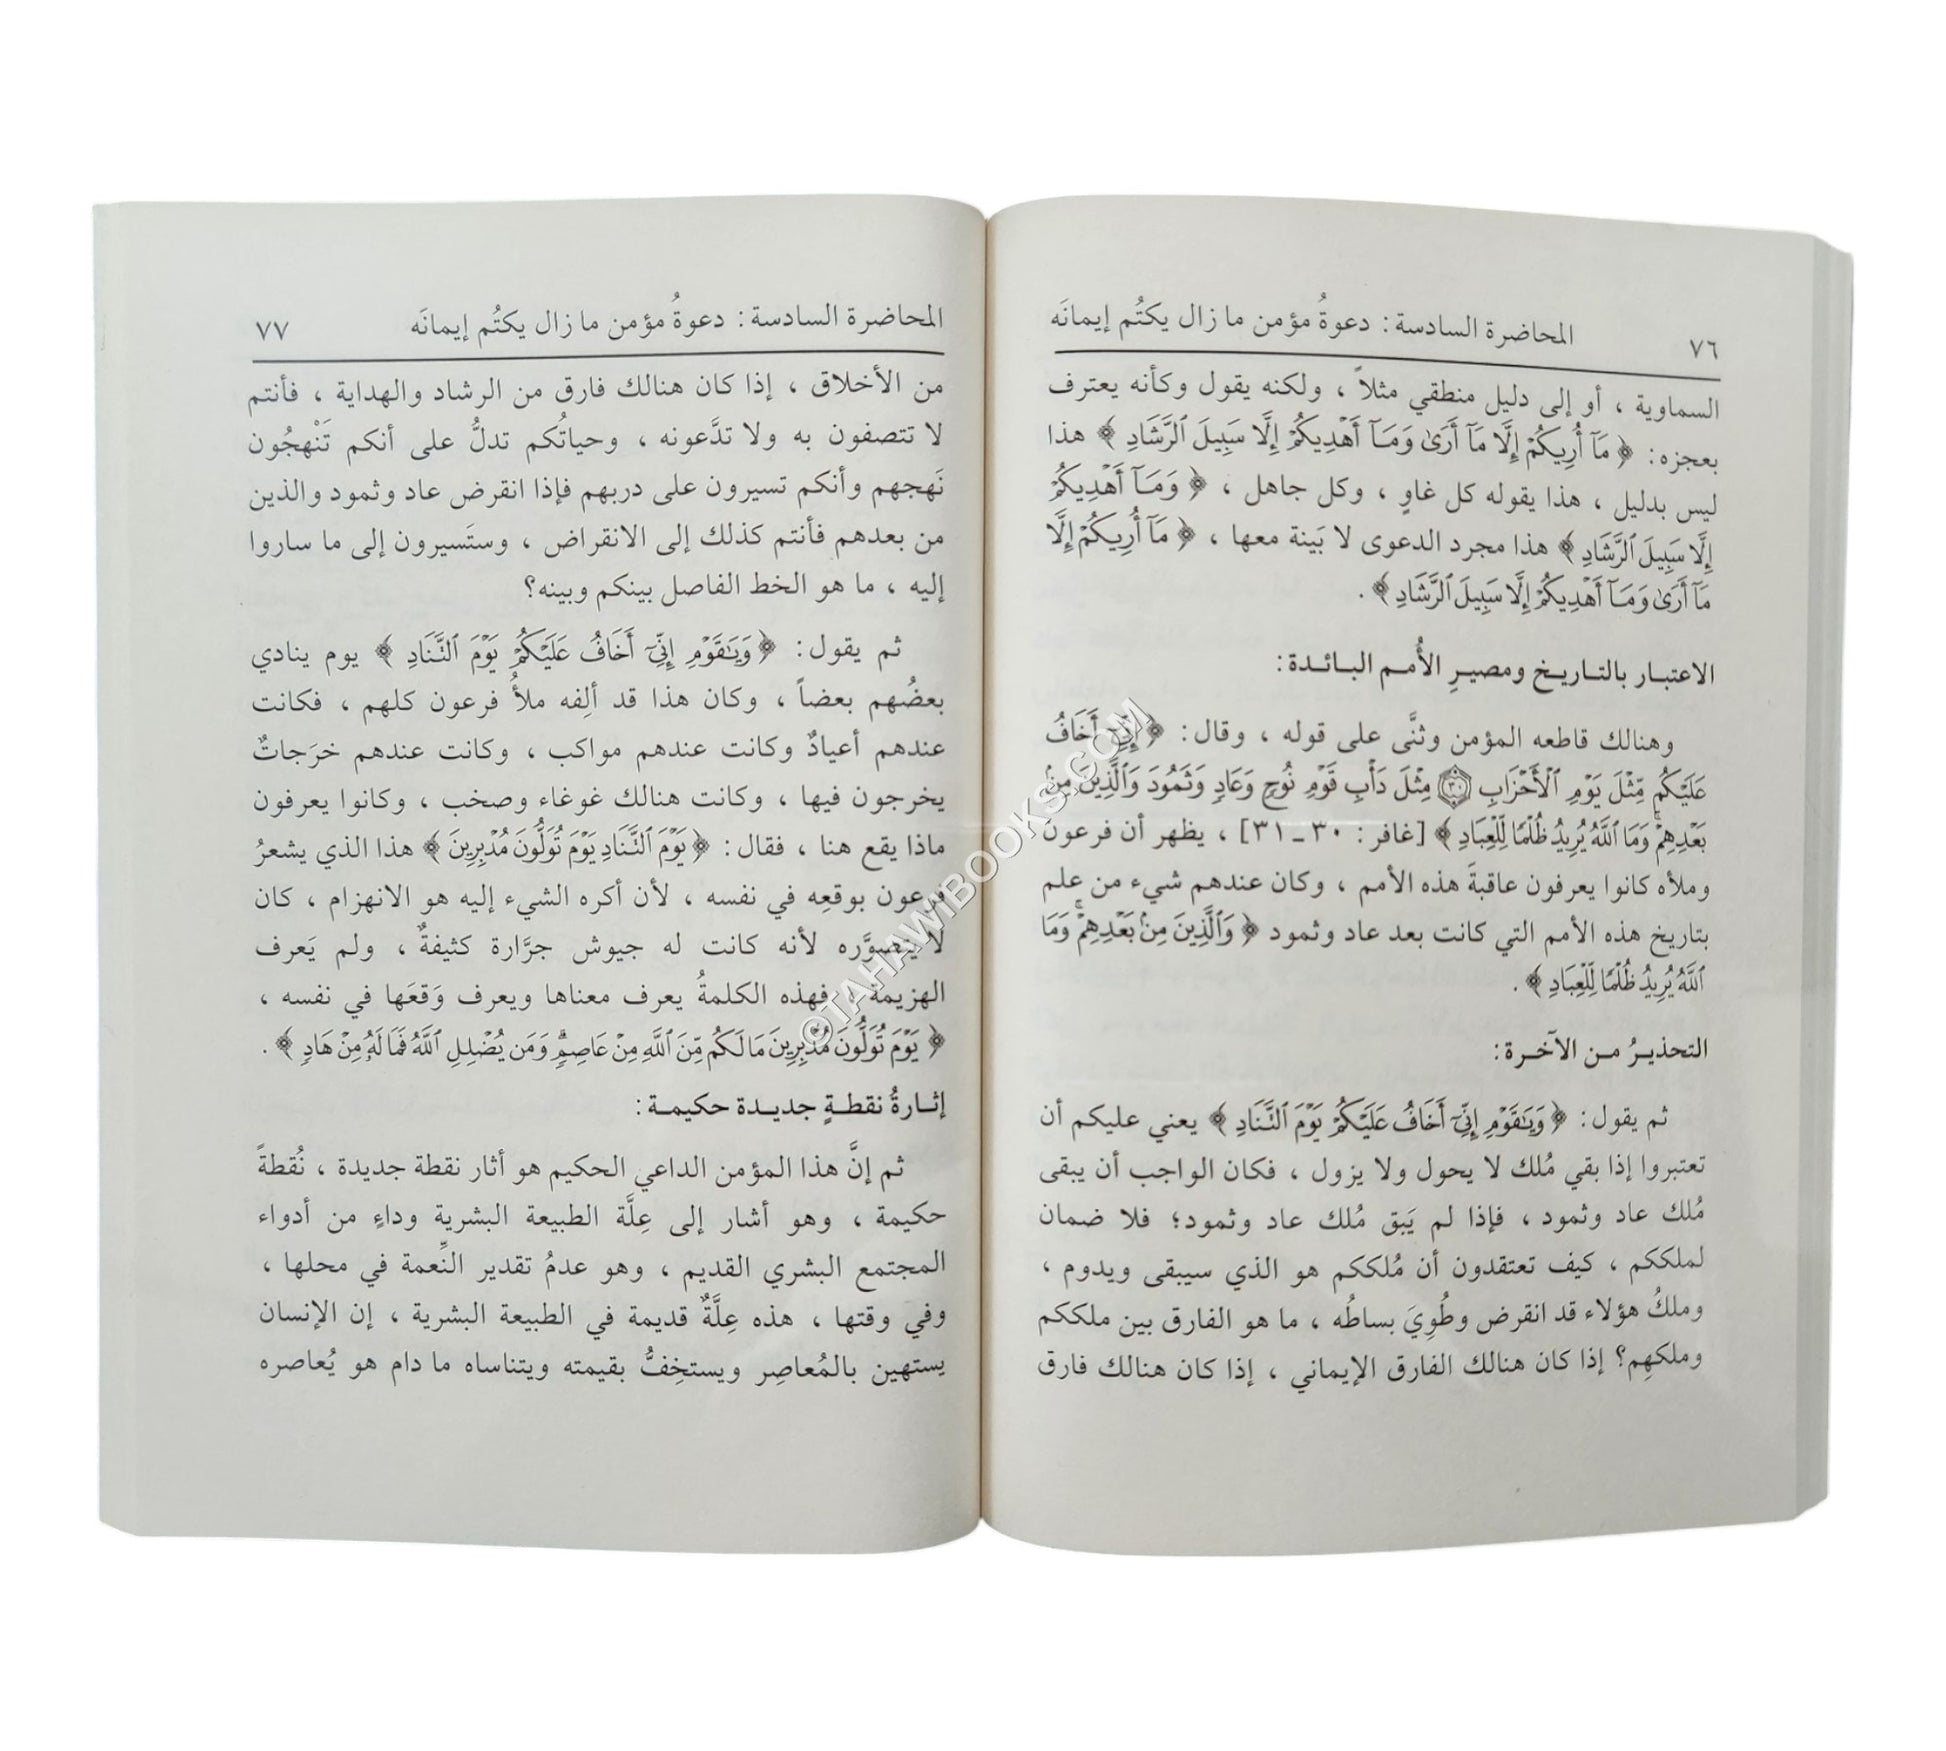 ٧٦ المحاضرة السادسة: دعوةُ مؤمن ما زال يكتُم إيمانَه
السماوية ، أو إلى دليل منطقي مثلاً ، ولكنه يقول وكأنه يعترف
بعجزه: ﴿ مَآ أُرِيكُمْ إِلَّا مَآ أَرَىٰ وَمَآ أَهْدِيكُمْ إِلَّا سَبِيلَ ٱلرَّشَادِ ﴾ هذا
ليس بدليل ، هذا يقوله كل غاوٍ ، وكل جاهل ، ﴿ وَمَآ أَهْدِيكُمْ
إِلَّا سَبِيلَ ٱلرَّشَادِ ﴾ هذا مجرد الدعوى لا بَينة معها ، ﴿ مَآ أُرِيكُمْ إِلَّا
مَآ أَرَىٰ وَمَآ أَهْدِيكُمْ إِلَّا سَبِيلَ ٱلرَّشَادِ ﴾ .
الاعتبـار بالتـاريـخ ومصيـرِ الأُمـم البـائـدة:
وهنالك قاطعه المؤمن وثنَّى على قوله ، وقال: ﴿ إِنِّىٓ أَخَافُ
عَلَيْكُم مِّثْلَ يَوْمِ ٱلْأَحْزَابِ ٣٠ مِثْلَ دَأْبِ قَوْمِ نُوحٍ وَعَادٍ وَثَمُودَ وَٱلَّذِينَ مِنۢ
بَعْدِهِمْ ۚ وَمَا ٱللَّهُ يُرِيدُ ظُلْمًا لِّلْعِبَادِ ﴾ [غافر: ٣٠ ـ ٣١] ، يظهر أن فرعون
وملأه كانوا يعرفون عاقبةَ هذه الأمم ، وكان عندهم شيء من علم
بتاريخ هذه الأمم التي كانت بعد عاد وثمود ﴿ وَٱلَّذِينَ مِنۢ بَعْدِهِمْ ۚ وَمَا
ٱللَّهُ يُرِيدُ ظُلْمًا لِّلْعِبَادِ ﴾ .
التحذيـرُ مـن الآخـرة:
ثم يقول: ﴿ وَيَٰقَوْمِ إِنِّىٓ أَخَافُ عَلَيْكُمْ يَوْمَ ٱلتَّنَادِ ﴾ يعني عليكم أن
تعتبروا إذا بقي مُلك لا يحول ولا يزول ، فكان الواجب أن يبقى
مُلك عاد وثمود ، فإذا لم يَبق مُلك عاد وثمود؛ فلا ضمان
لملككم ، كيف تعتقدون أن مُلككم هو الذي سيبقى ويدوم ،
وملكُ هؤلاء قد انقرض وطُوِيَ بساطُه ، ما هو الفارق بين ملككم
وملكهِم؟ إذا كان هنالك الفارق الإيماني ، إذا كان هنالك فارق
المحاضرة السادسة: دعوةُ مؤمن ما زال يكتُم إيمانَه ٧٧
من الأخلاق ، إذا كان هنالك فارق من الرشاد والهداية ، فأنتم
لا تتصفون به ولا تدَّعونه ، وحياتُكم تدلُّ على أنكم تَنْهجُون
نَهجهم وأنكم تسيرون على دربهم فإذا انقرض عاد وثمود والذين
من بعدهم فأنتم كذلك إلى الانقراض ، وستَسيرون إلى ما ساروا
إليه ، ما هو الخط الفاصل بينكم وبينه؟
ثم يقول: ﴿ وَيَٰقَوْمِ إِنِّىٓ أَخَافُ عَلَيْكُمْ يَوْمَ ٱلتَّنَادِ ﴾ يوم ينادي
بعضُهم بعضاً ، وكان هذا قد ألِفه ملأُ فرعون كلهم ، فكانت
عندهم أعيادٌ وكانت عندهم مواكب ، وكانت عندهم خرَجاتٌ
يخرجون فيها ، وكانت هنالك غوغاء وصخب ، وكانوا يعرفون
ماذا يقع هنا ، فقال: ﴿ يَوْمَ ٱلتَّنَادِ يَوْمَ تُوَلُّونَ مُدْبِرِينَ ﴾ هذا الذي يشعرُ
فرعون بوقعِه في نفسه ، لأن أكره الشيء إليه هو الانهزام ، كان
لا يتصوَّره لأنه كانت له جيوش جرَّارة كثيفةٌ ، ولم يَعرف
الهزيمة ، فهذه الكلمةُ يعرف معناها ويعرف وَقعَها في نفسه ،
﴿ يَوْمَ تُوَلُّونَ مُدْبِرِينَ مَا لَكُم مِّنَ ٱللَّهِ مِنْ عَاصِمٍ ۗ وَمَن يُضْلِلِ ٱللَّهُ فَمَا لَهُۥ مِنْ هَادٍ ﴾ .
إثـارةُ نقطـةٍ جديـدة حكيمـة:
ثم إنَّ هذا المؤمن الداعي الحكيم هو أثار نقطة جديدة ، نُقطةً
حكيمة ، وهو أشار إلى عِلَّة الطبيعة البشرية وداءٍ من أدواء
المجتمع البشري القديم ، وهو عدمُ تقدير النِّعمة في محلها ،
وفي وقتها ، هذه عِلَّةٌ قديمة في الطبيعة البشرية ، إن الإنسان
يستهين بالمُعاصِر ويستخِفُّ بقيمته ويتناساه ما دام هو يُعاصره
©TAHAWIBOOKS.COM